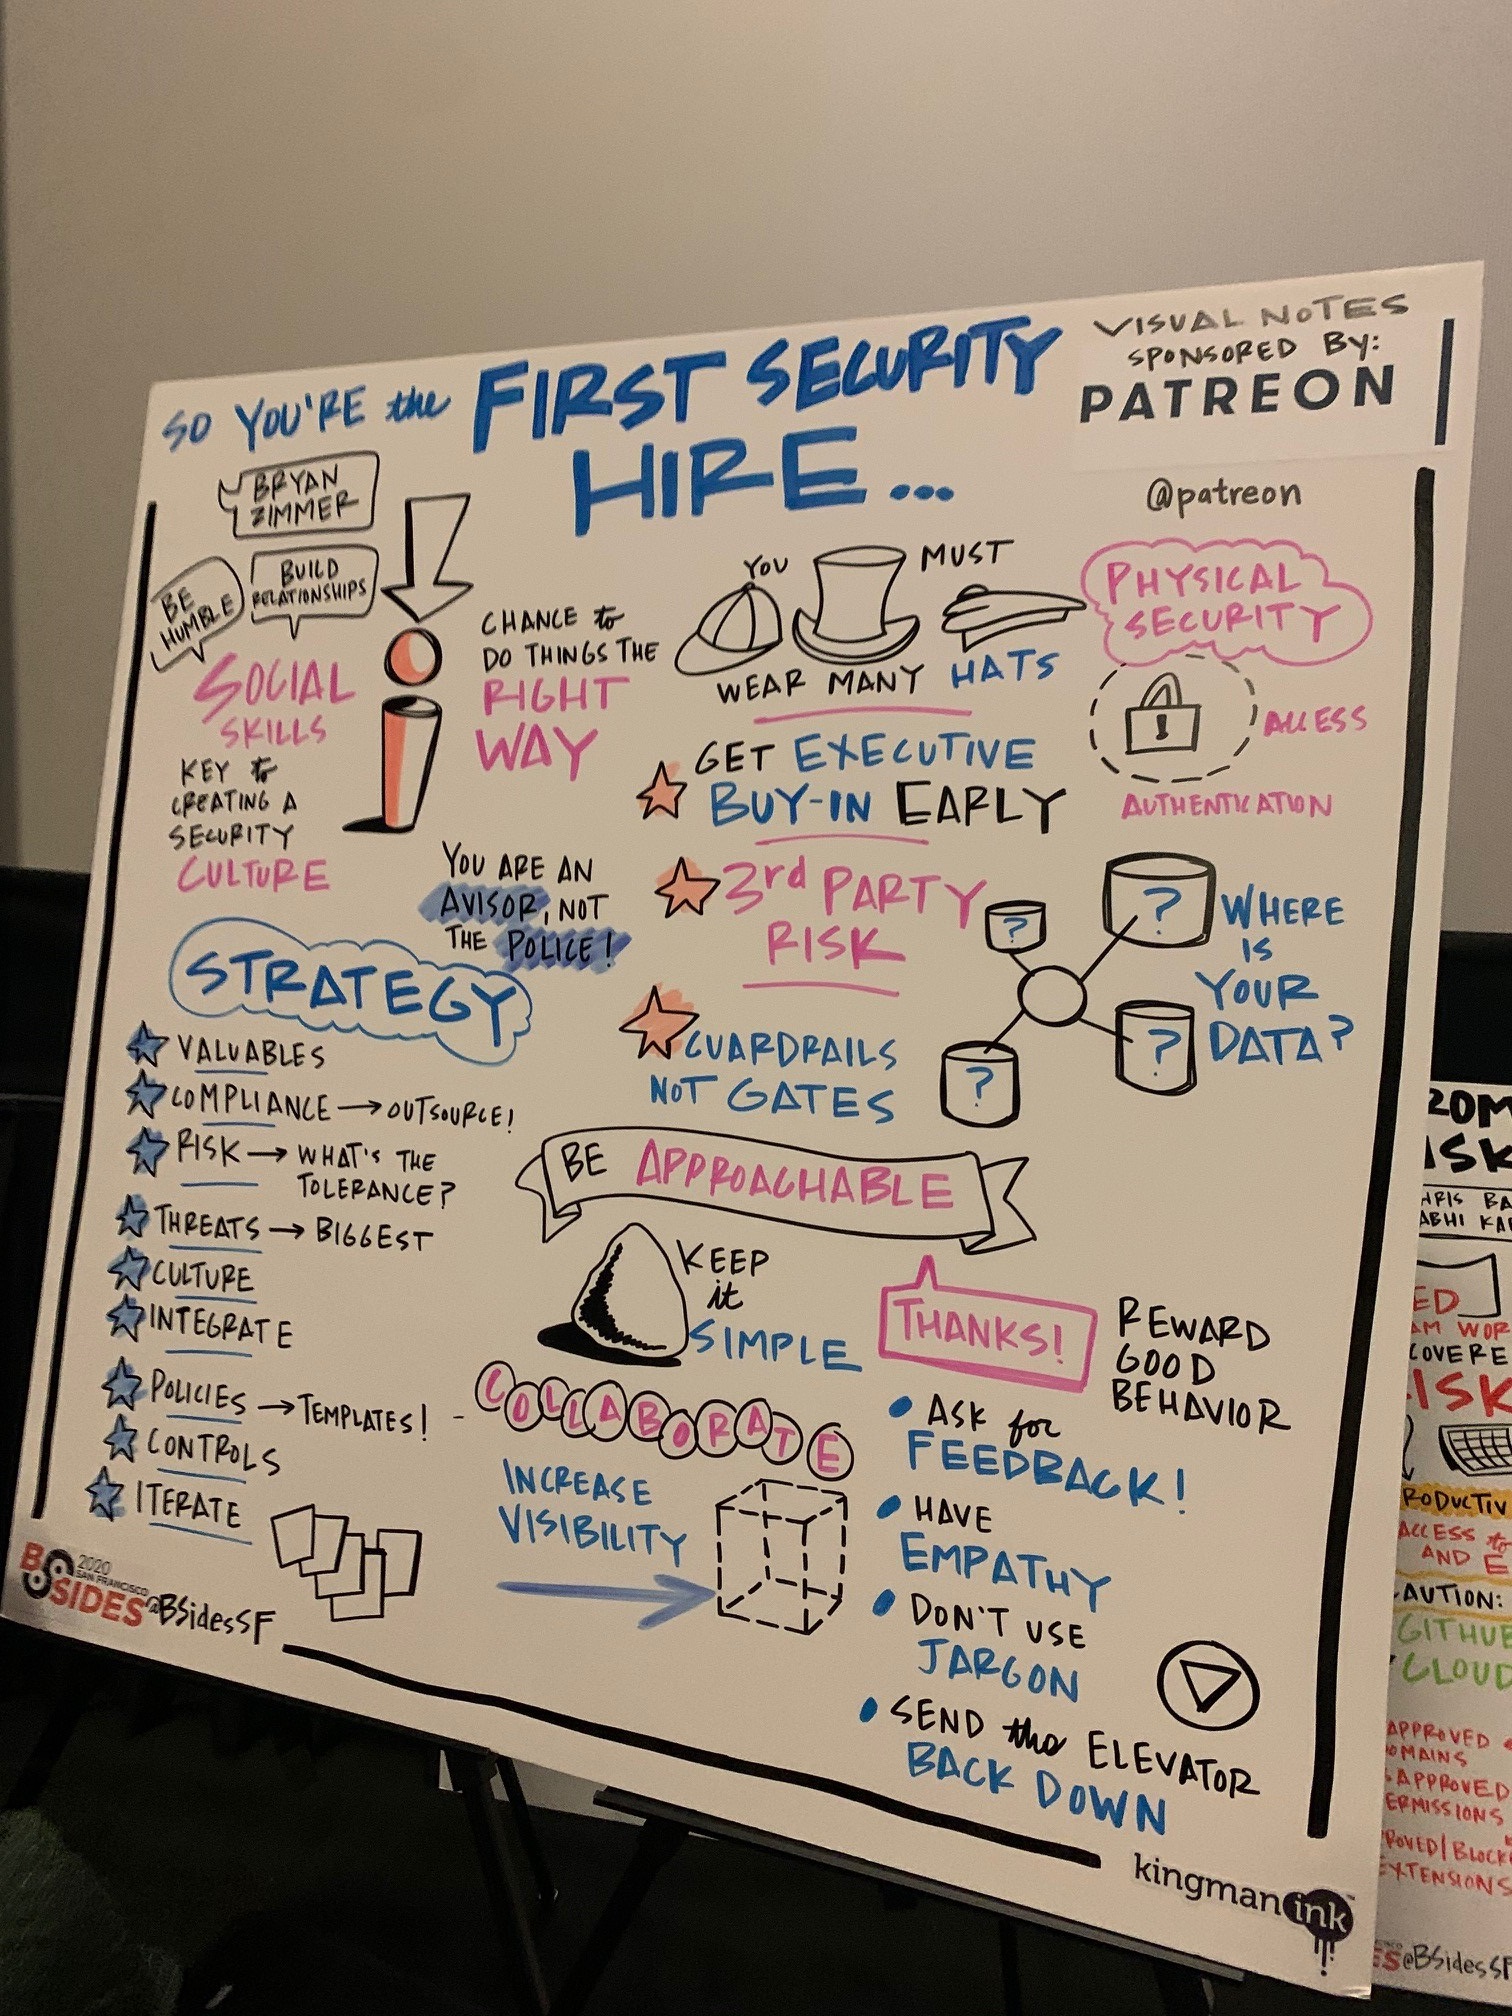 SO YOU'RE the FIRST SECURITY
HIRE...
VISUAL NOTES
SPONSORED BY:
PATREON
@patreon
BRYAN
ZIMMER
BE
HUMBLE
BUILD
RELATIONSHIPS
SOCIAL
SKILLS
KEY to
CREATING A
SECURITY
CULTURE
CHANCE to
DO THINGS THE
RIGHT
WAY
YOU ARE AN
AVISOR, NOT
THE POLICE!
YOU MUST
WEAR MANY HATS
GET EXECUTIVE
BUY-IN EARLY
3rd PARTY
RISK
GUARDRAILS
NOT GATES
PHYSICAL
SECURITY
ACCESS
AUTHENTICATION
?
?
?
?
WHERE
IS
YOUR
DATA?
STRATEGY
VALUABLES
COMPLIANCE → OUTSOURCE!
RISK → WHAT'S THE
TOLERANCE?
THREATS → BIGGEST
CULTURE
INTEGRATE
POLICIES → TEMPLATES! -
CONTROLS
ITERATE
BE APPROACHABLE
KEEP
it
SIMPLE
COLLABORATE
INCREASE
VISIBILITY
THANKS!
REWARD
GOOD
BEHAVIOR
• ASK for
FEEDBACK!
• HAVE
EMPATHY
• DON'T USE
JARGON
• SEND the ELEVATOR
BACK DOWN
BSIDES
2020
SAN FRANCISCO
@BSidesSF
kingman ink
ABHI
COVERE
ACCESS to
AND E
CAUTION:
GITHUB
CLOUD
APPROVED
APPROVED
@BSidesSF